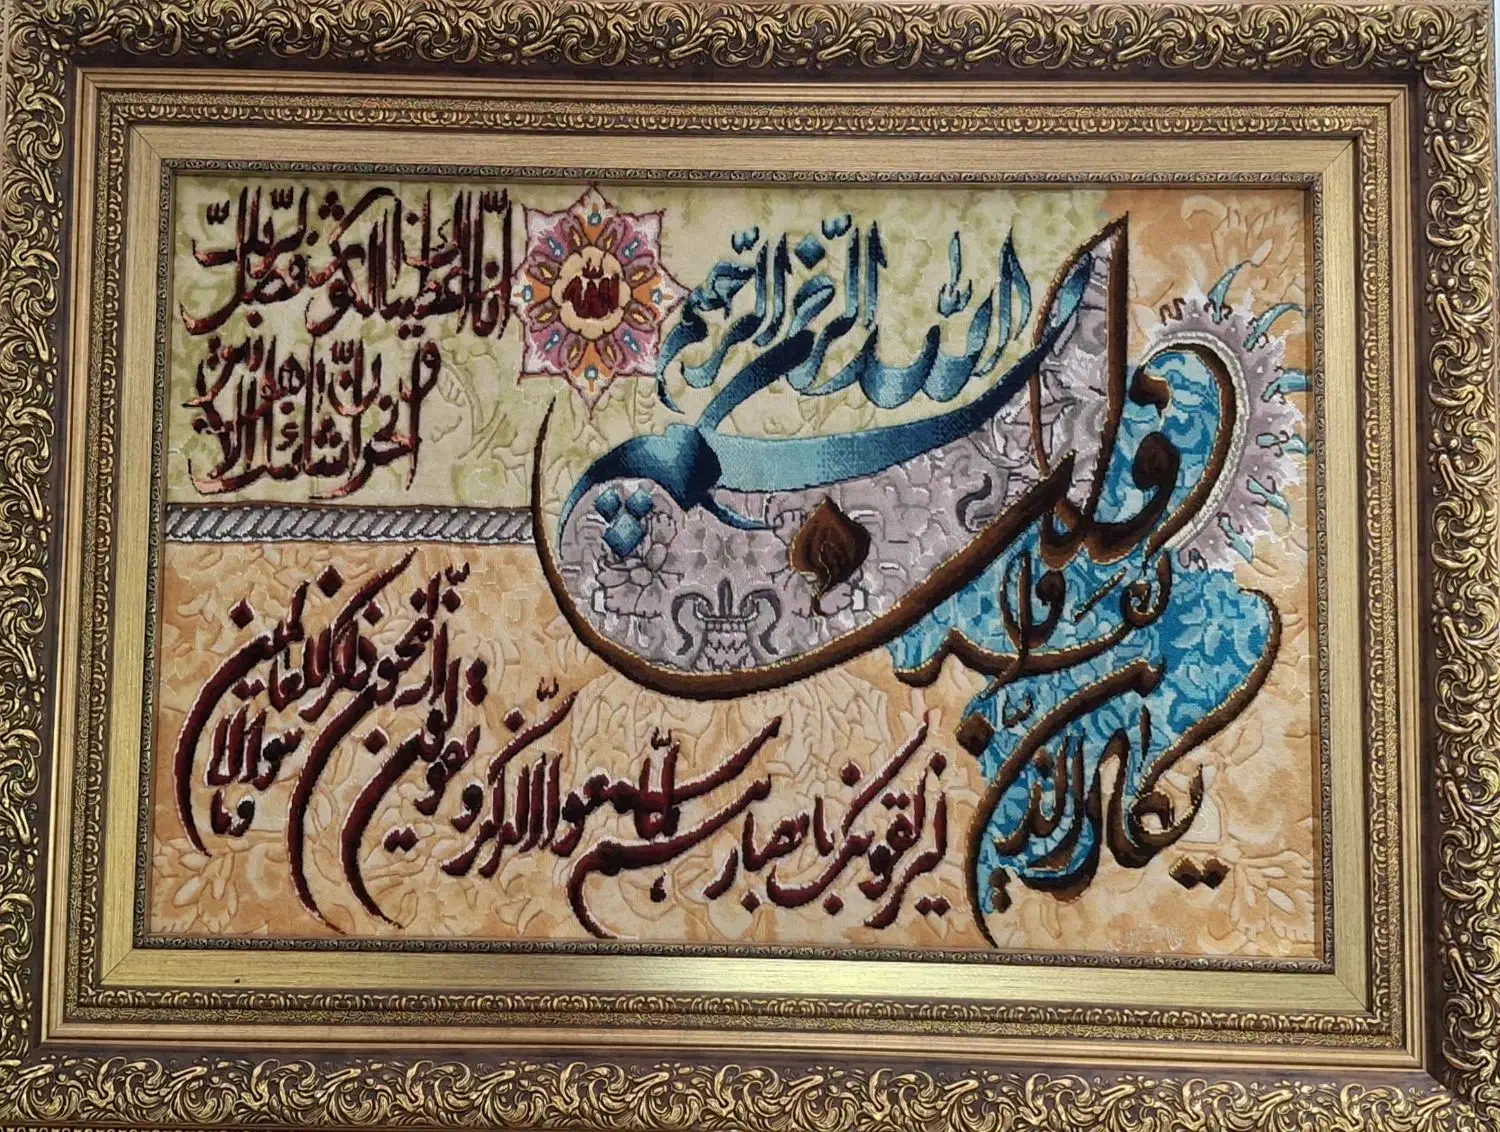 بسم الله الرحمن الرحیم
وان یکاد الذین کفروا
لیزلقونک بابصارهم لما سمعوا الذکر و یقولون انه لمجنون
وما هو الا ذکر للعالمین
الله
انّا اعطیناک الکوثر فصل لربّک
وانحر إنّ شانئک هو الابتر